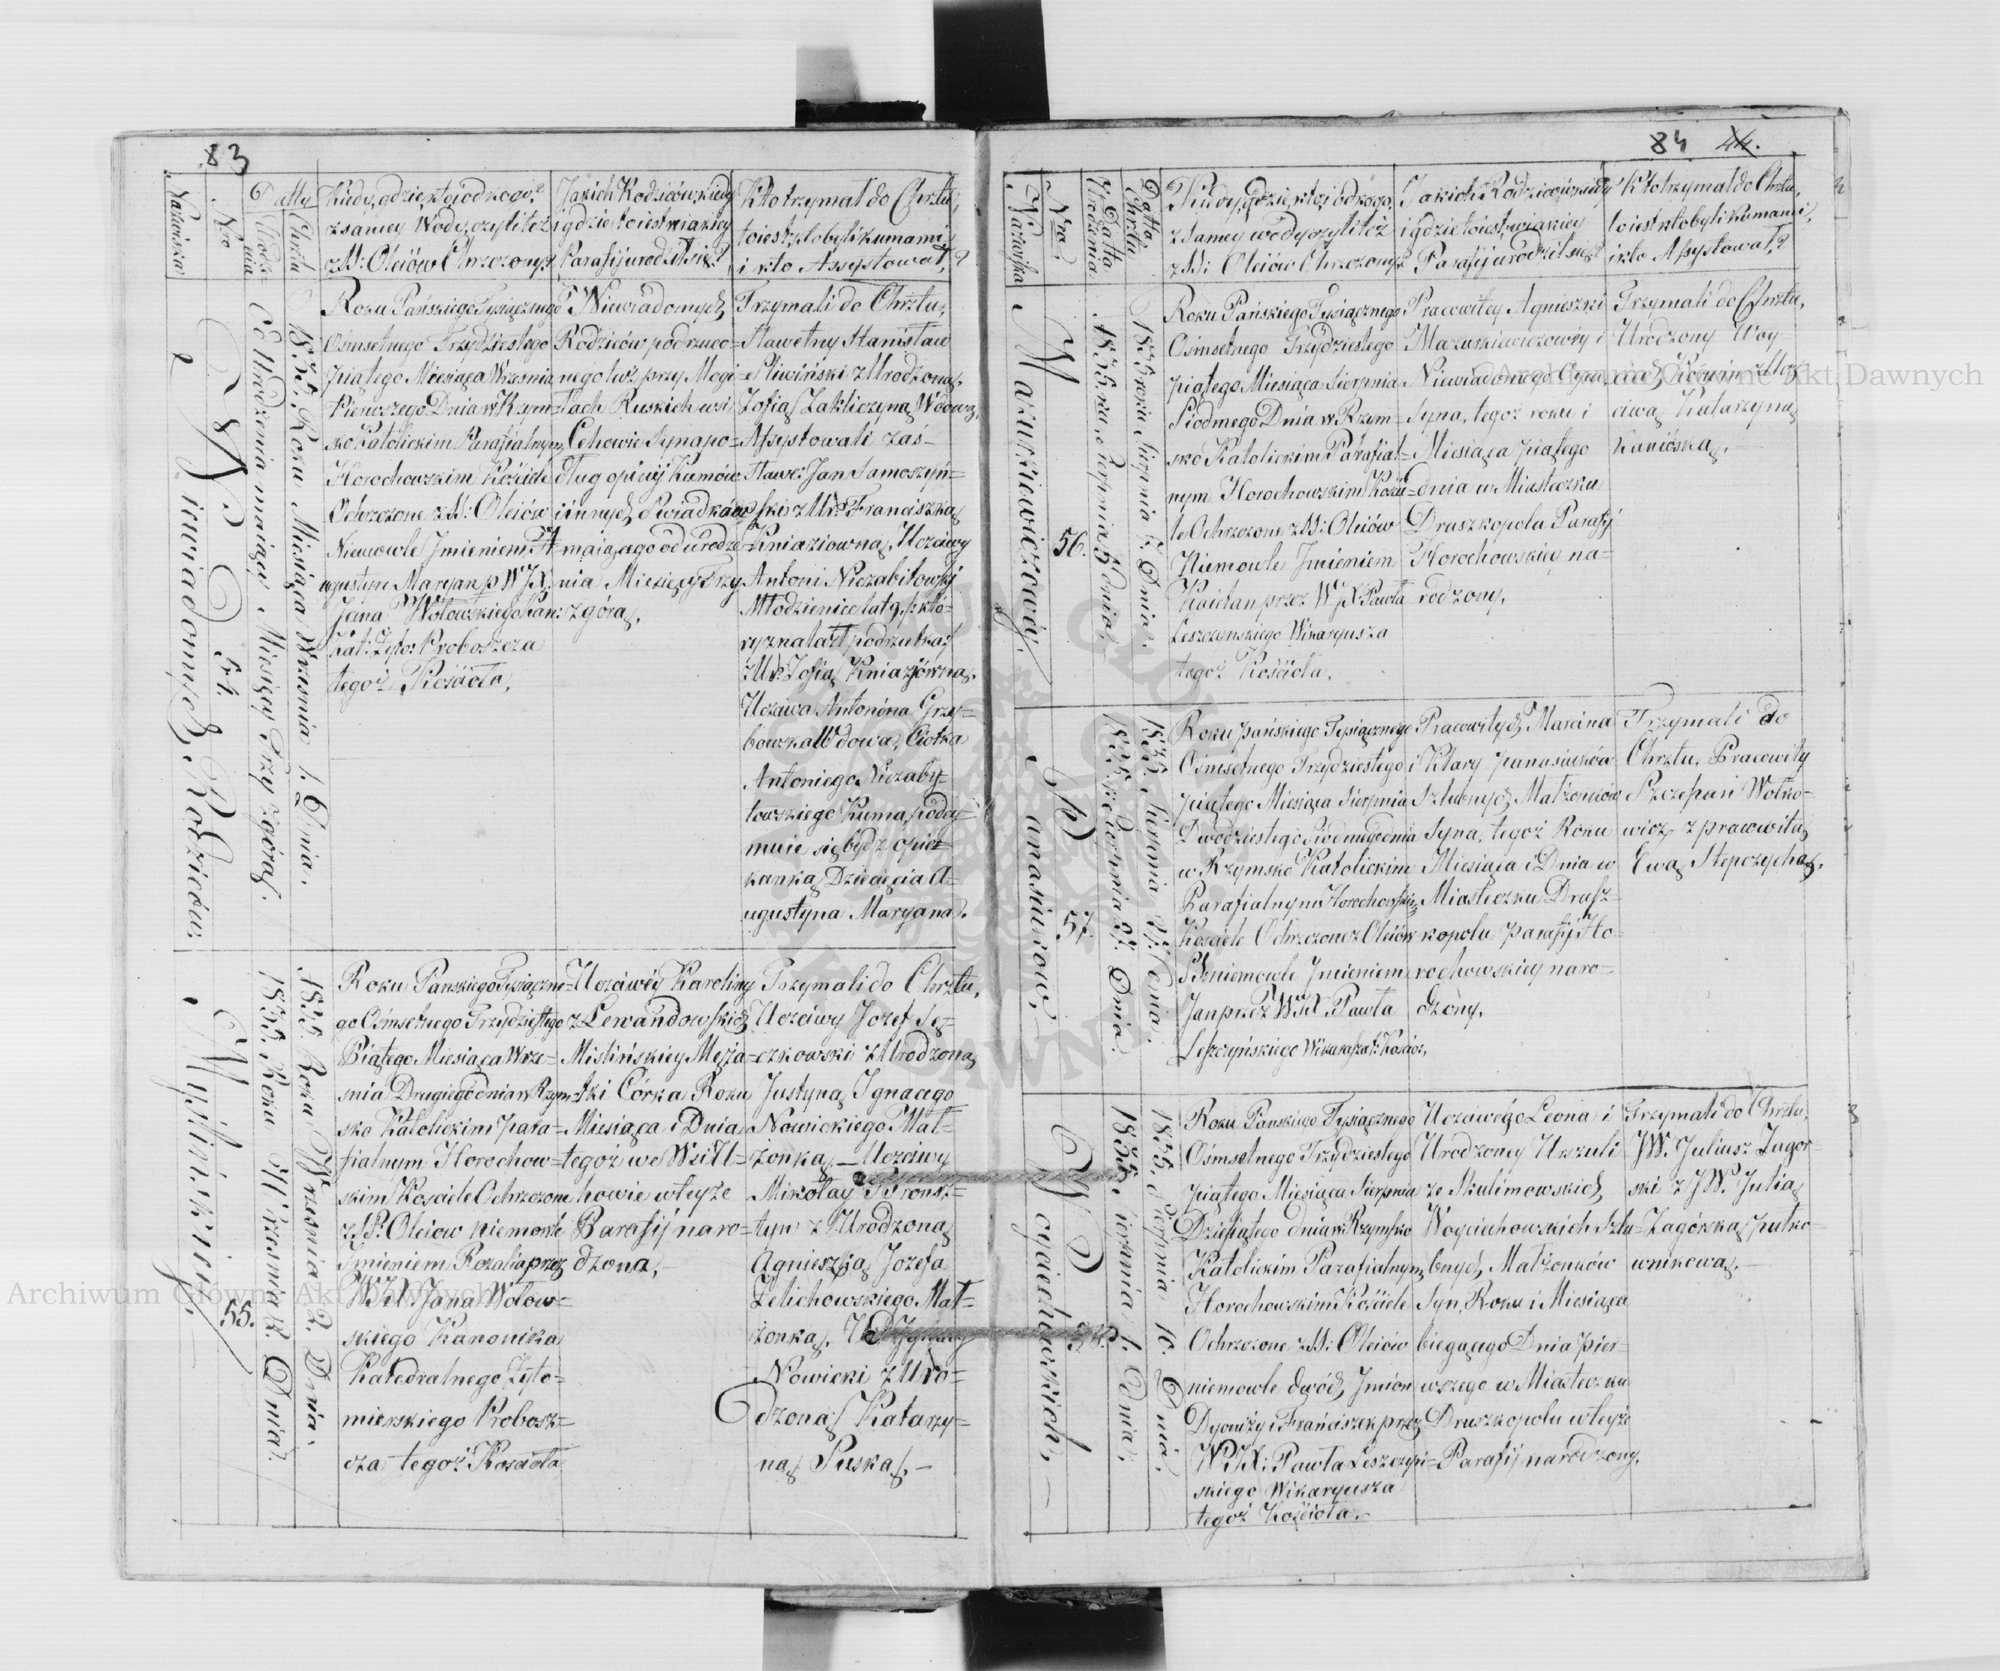 83
Nazwiska
Nro
Datty
Urodzenia
Chrztu
Kiedy, gdzie, kto i od kogo?
z samey Wody, czyli też i
z SS: Oleiów Chrzczony?
Jakich Rodziców, kiedy
i gdzie to iest w iakiey
Parafij urodził się?
Kto trzymał do Chrztu,
to iest kto byli kumami,
i kto Assystował,?
Niewiadomych Rodziców.
54.
Od Urodzenia maiące Miesięcy Trzy z górą.
1835. Roku Miesiąca Września 1. Dnia.
Roku Pańskiego Tysiącznego
Ośmsetnego Trzydziestego
piątego Miesiąca Września
Pierwszego Dnia w Rzym-
sko Katolickim Parafialnym
Horochowskim Kościele
Ochrzczone z SS: Oleiów
Niemowle Jmieniem A-
ugustyn Maryan p. W JX:
Jana Wołowskiego Kan:
Kat: Żyto: Proboszcza
tegoż Kościoła,
Niewiadomych
Rodziców podrzuco-
nego też przy Mogi-
łach Ruskich wsi
Cehowie Syna po-
dług opinij Kumów
i innych Swiadków
maiącego od urodze-
nia Miesięcy Trzy
z górą,
Trzymali do Chrztu,
Sławetny Stanisław
Sliwiński z Urodzoną
Zofią Zakliczyną Wdową,
Assystowali zaś-
Sławe: Jan Samoszyń-
ski z Ur: Franciszką
Kniaziowną, Uczciwy
Antoni Niezabitowski
Młodzieniec lat 9, kto-
ry znalazł podrzutka:
z Ur: Zofią Kniaziówną.
Uczciwa Antonina Grzy-
bowska Wdowa, Ciotka
Antoniego Niezaby-
towskiego Kuma, podey-
muie się bydź opie-
kunką Dziecięcia A-
ugustyna Maryana.
Myslińskiey.
55.
1835. Roku Września 2. Dnia.
1835. Roku Września 2. Dnia.
Roku Panskiego Tysiączne-
go Ośmsetnego Trzydziestego
Piątego Miesiąca Wrze-
snia Drugiego dnia w Rzym-
sko Katolickim Para-
fialnym Horochow-
skim Kościele Ochrzczone
z SS: Oleiow niemowle
Jmieniem Rozalia przez
WJX. Jana Wołow-
skiego Kanonika
Katedralnego Żyto-
mierskiego Probosz-
cza tegoż Kościoła
Uczciwéy Karoliny
z Lewandowskich
Mislińskiey Męża-
tki Córka Roku
Miesiąca i Dnia
tegoż we Wsi U-
howie w teyże
Parafij naro-
dzona,
Trzymali do Chrztu,
Uczciwy Jozef Sę-
czkowski z Urodzoną
Justyną Ignacego
Nowickiego Mał-
żonką.- Uczciwy
Mikołay Bronsz-
tyn z Urodzoną
Agnieszką Jozefa
Zelichowskiego Mał-
żonką. Ur: Jgnacy
Nowicki z Uro-
dzoną Katarzy-
ną Puską.-
84 44.
Nazwiska
Nro.
Datta Urodzenia
Datta Chrztu
Kiedy, gdzie, kto, i od kogo,
z samey wody czyli też
z SS: Oleiów Chrzczony?
Jakich Rodziców, kiedy
i gdzie to iest w iakiey
Parafij urodził się?
Kto trzymał do Chrztu,
to iest kto byli kumami,
i kto Assystował,?
Mazurkiewiczowéy.
56.
1835. roku Sierpnia 5 dnia.
1835 roku Sierpnia 7. Dnia.
Roku Pańskiego Tysiącznego
Ośmsetnego Trzydziestego
piątego Miesiąca Sierpnia
Siodmego Dnia w Rzym-
sko Katolickim Parafial-
nym Horochowskim Kości-
le Ochrzczone z SS: Oleiów
Niemowle Jmieniem
Kaietan przez W JX: Pawła
Leszczynskiego Wikaryusza
tegoż Kościoła.
Pracowitey Agnieszki
Mazurkiewiczowéy i
Niewiadomego Oyca
Syna, tegoż roku i
Miesiąca piątego
dnia w Miasteczku
Druszkopolu Parafij
Horochowskiéy na-
rodzony,
Trzymali do Chrztu,
Urodzony Woy-
ciech Korwin z Ucz-
ciwą Katarzyną
Kanióską,-
Panasiuków,
57.
1835. Sierpnia 27. Dnia
1835. Sierpnia 27. Dnia.
Roku Pańskiego Tysiącznego
Ośmsetnego Trzydziestego
piątego Miesiąca Sierpnia
Dwódziestego Siodmego dnia
w Rzymsko Katolickim
Parafialnym Horochowskim
Kościele Ochrzczone z Oleiów
SS: niemowle Jmieniem
Jan przez WJX. Pawła
Leszczyńskiego Wikarusza t: Kościoł,
Pracowitych Marcina
i Klary Panasiuków
Szlubnych Małżonków
Syna, tegoż Roku
Miesiąca i Dnia w
Miasteczku Drusz-
kopolu Parafij Ho-
rochowskiey naro-
dzony,
Trzymali do
Chrztu, Pracowity
Szczepan Wołko-
wicz z pracowitą
Ewą Stepczychą.
Woyciechowskich,-
1835. Sierpnia 1. Dnia.
1835. Sierpnia 10. Dnia.
Roku Pańskiego Tysiącznego
Ośmsetnego Trzydziestego
piątego Miesiąca Sierpnia
Dziesiątego dnia w Rzymsko
Katolickim Parafialnym
Horochowskim Kościele
Ochrzczone z SS: Oleiów
niemowle dwóch Jmion
Dyonizy i Franciszek przez
W JX: Pawła Leszczyń-
skiego Wikaryusza
tegoż Kościoła.-
Uczciwego Leona i
Urodzoney Urszuli
ze Skulimowskich
Woyciechowskich Szlu-
bnych Małżonków
Syn, Roku i Miesiąca
biegącego Dnia pier-
wszego w Miasteczku
Druszkopolu w teyże
Parafij narodzony.
Trzymali do Chrztu,
JW. Juliusz Zagor
ski z JW. Julią
Zagórską pułko-
wnikową,-
Archiwum Główne Akt Dawnych
©Archiwum Główne Akt Dawnych